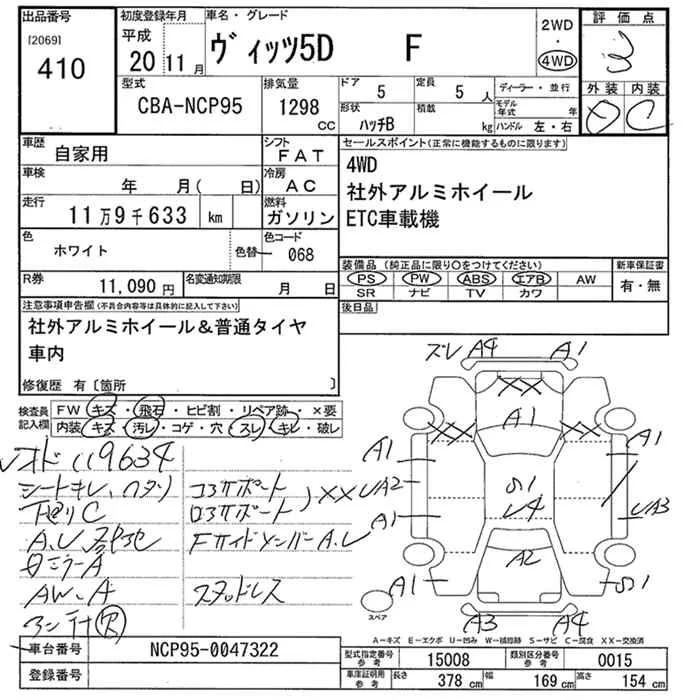 出品番号
[2069]
410
初度登録年月
平成
20 11月
車名・グレード
ヴィッツ5D F
2WD
4WD
評価点
3
外装 内装
D C
型式
CBA-NCP95
排気量
1298
CC
ドア
5
定員
5人
形状
ハッチB
積載
kg
ディーラー・並行
モデル年式 年
ハンドル 左・右
車歴
自家用
シフト
FAT
車検
年 月( 日)
冷房
AC
走行
11万9千633 km
燃料
ガソリン
色
ホワイト
色替
色コード
068
セールスポイント(正常に機能するものに限ります)
4WD
社外アルミホイール
ETC車載機
R券
11,090円
名変通知期限
月 日
装備品(純正品に限り○をつけてください)
新車保証書
PS PW ABS エアB AW
SR ナビ TV カワ
有・無
後日品
注意事項申告欄(不具合内容等は具体的に記入して下さい)
社外アルミホイール&普通タイヤ
車内
修復歴 有〔箇所 〕
検査員
記入欄
FW キズ・飛石・ヒビ割・リペア跡・×要
内装 キズ・汚レ・コゲ・穴・スレ・キレ・破レ
119634
シートキレ、
下廻りC
A,U
ミラーA
AW-A
コアサポート
ロアサポート
XX
Fサイドメンバー A,U
スタッドレス
ズレ A4 A1
XX
A1
XX XX
A1 A1
UA2
S1
U4
A1 UA3
A2
A1 S1
A3 A4
スペア
A－キズ E－エクボ U－凹み W－補修跡 S－サビ C－腐食 XX－交換済
車台番号
NCP95-0047322
登録番号
型式指定番号
参考
15008
類別区分番号
参考
0015
車庫証明用
参考
長さ 378 cm
幅 169 cm
高さ 154 cm